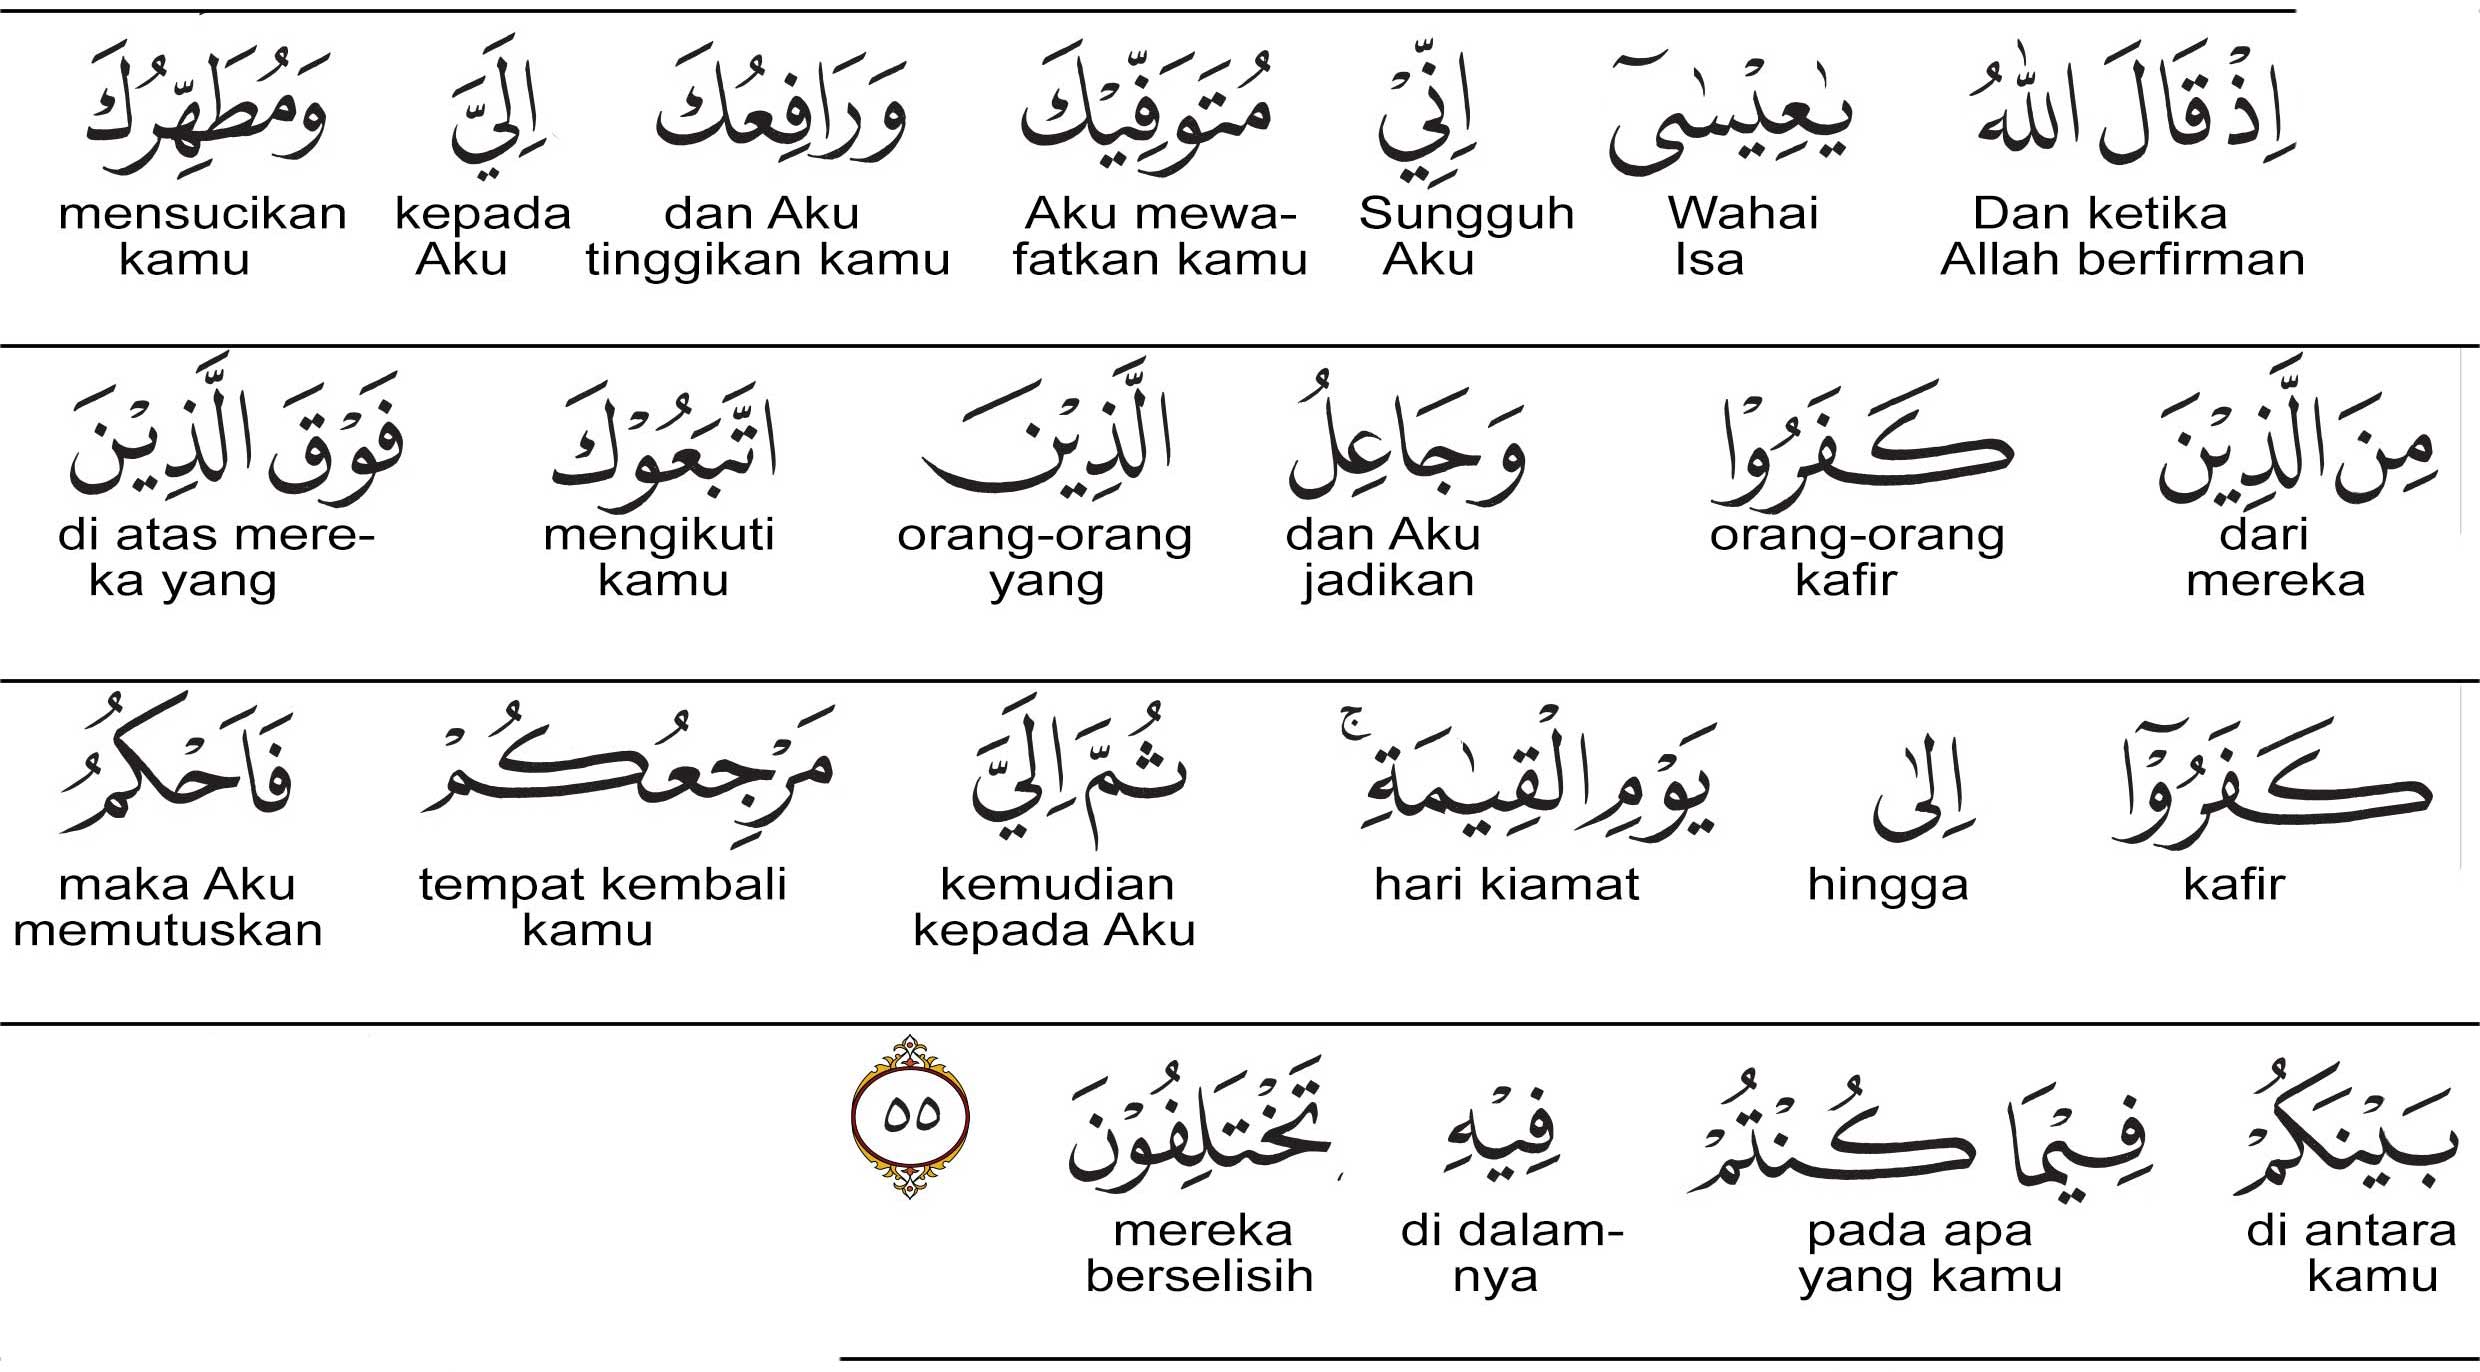 اِذْ قَالَ اللّٰهُ يٰعِيْسٰىٓ اِنِّيْ مُتَوَفِّيْكَ وَرَافِعُكَ اِلَيَّ وَمُطَهِّرُكَ
Dan ketika Wahai Sungguh Aku mewa- dan Aku kepada mensucikan
Allah berfirman Isa Aku fatkan kamu tinggikan kamu Aku kamu
مِنَ الَّذِيْنَ كَفَرُوْا وَجَاعِلُ الَّذِيْنَ اتَّبَعُوْكَ فَوْقَ الَّذِيْنَ
dari orang-orang dan Aku orang-orang mengikuti di atas mere-
mereka kafir jadikan yang kamu ka yang
كَفَرُوْٓا اِلٰى يَوْمِ الْقِيٰمَةِ ۚ ثُمَّ اِلَيَّ مَرْجِعُكُمْ فَاَحْكُمُ
kafir hingga hari kiamat kemudian tempat kembali maka Aku
kepada Aku kamu memutuskan
بَيْنَكُمْ فِيْمَا كُنْتُمْ فِيْهِ تَخْتَلِفُوْنَ ٥٥
di antara pada apa di dalam- mereka
kamu yang kamu nya berselisih